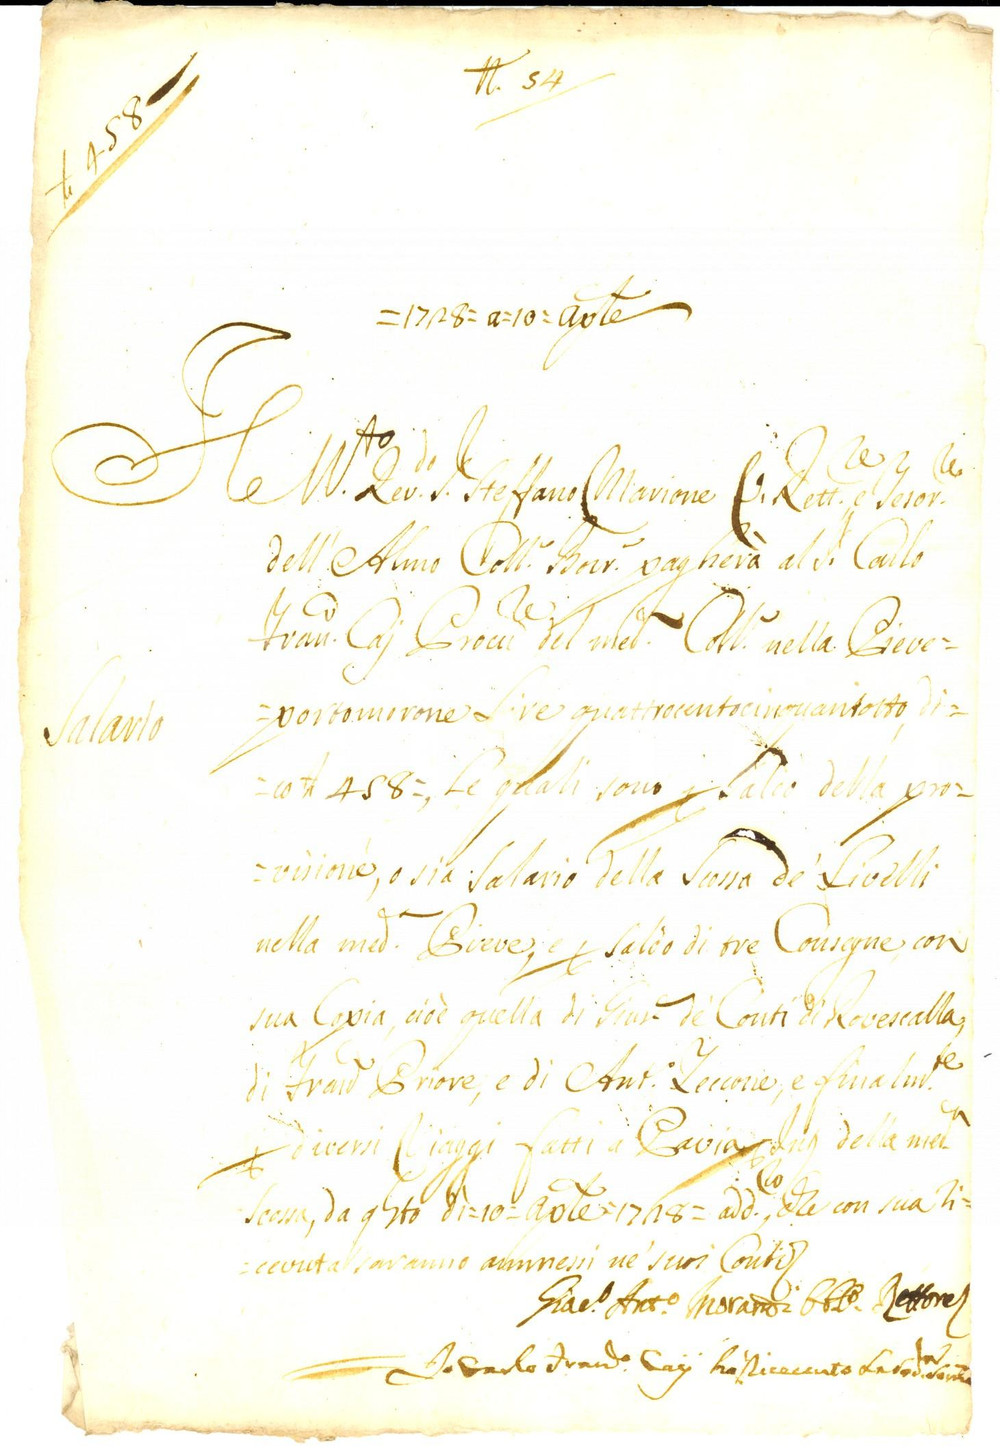 N. 54
£ 458
=1728= a=10= Agosto
Il M.to Rev.do S.r Steffano Marione V. Rett.re e Tesor.re
dell' Almo Coll.o Borr.o pagherà al S.r Carlo
Fran.co Caj Procu.re del med.o Coll.o nella Pieve=
=portomorone Lire quattrocentocinquantotto, di=
=co £ 458=, Le quali sono p saldo della pro=
=visione, o sia salario della Scossa de' Livelli
nella med.a Pieve, e p saldo di tre Consegne, con
sua Copia, cioè quella di de' Conti di Rovescalla,
di Fran.co Priore, e di Ant.o Zeccone, e finalm.te
p diversi Viaggi fatti a Pavia della med.a
Scossa, da q.sto dì =10= Agosto =1728= add.o, che con sua ri=
=cevuta saranno ammessi ne' suoi Conti
Salario
Giac.o Ant.o Morandi Rettore
Io Carlo Fran.co Caij ho Riceeuto La sud.a Somma